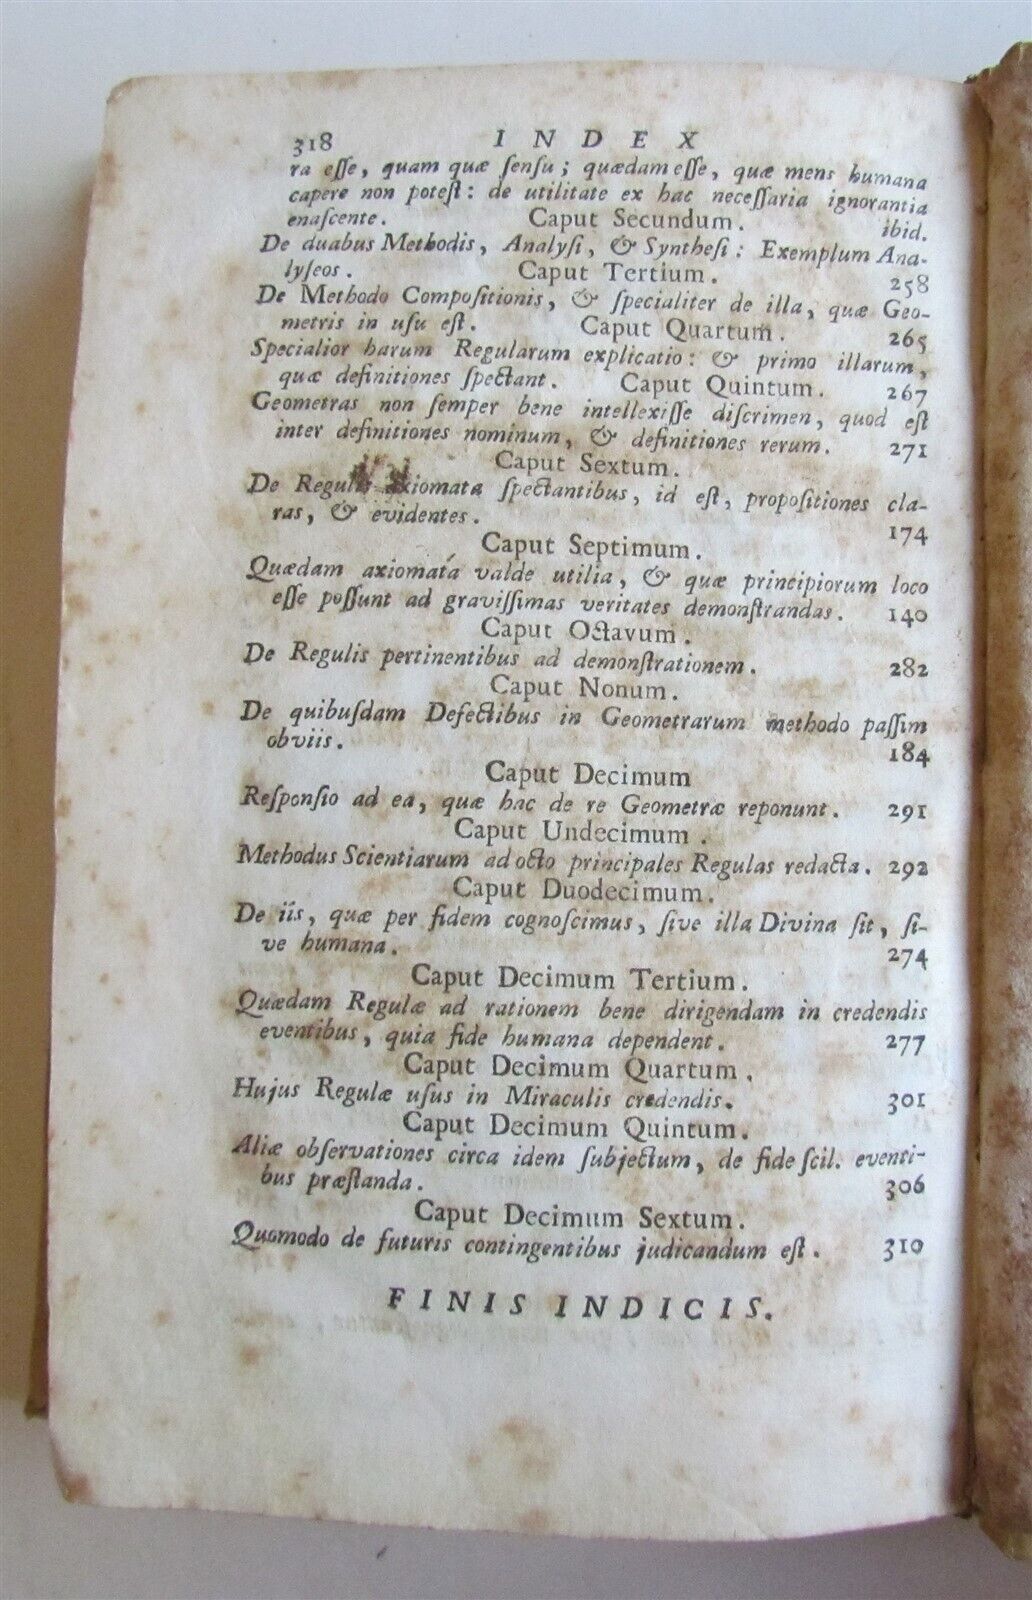 318 INDEX
ra eſſe, quam quæ ſenſu; quædam eſſe, quæ mens humana
capere non poteſt: de utilitate ex hac neceſſaria ignorantia
enaſcente. ibid.
Caput Secundum.
De duabus Methodis, Analyſi, & Syntheſi: Exemplum Ana-
lyſeos. 258
Caput Tertium.
De Methodo Compoſitionis, & ſpecialiter de illa, quæ Geo-
metris in uſu eſt. 265
Caput Quartum.
Specialior harum Regularum explicatio: & primo illarum,
quæ definitiones ſpectant. 267
Caput Quintum.
Geometras non ſemper bene intellexiſſe diſcrimen, quod eſt
inter definitiones nominum, & definitiones rerum. 271
Caput Sextum.
De Regulis axiomata ſpectantibus, id eſt, propoſitiones cla-
ras, & evidentes. 174
Caput Septimum.
Quædam axiomatá valde utilia, & quæ principiorum loco
eſſe poſſunt ad graviſſimas veritates demonſtrandas. 140
Caput Octavum.
De Regulis pertinentibus ad demonſtrationem. 282
Caput Nonum.
De quibuſdam Defectibus in Geometrarum methodo paſſim
obviis. 184
Caput Decimum
Reſponſio ad ea, quæ hac de re Geometræ reponunt. 291
Caput Undecimum.
Methodus Scientiarum ad octo principales Regulas redacta. 292
Caput Duodecimum.
De iis, quæ per fidem cognoſcimus, ſive illa Divina ſit, ſi-
ve humana. 274
Caput Decimum Tertium.
Quædam Regulæ ad rationem bene dirigendam in credendis
eventibus, quia fide humana dependent. 277
Caput Decimum Quartum.
Hujus Regulæ uſus in Miraculis credendis. 301
Caput Decimum Quintum.
Aliæ obſervationes circa idem ſubjectum, de fide ſcil. eventi-
bus præſtanda. 306
Caput Decimum Sextum.
Quomodo de futuris contingentibus judicandum eſt. 310
FINIS INDICIS.